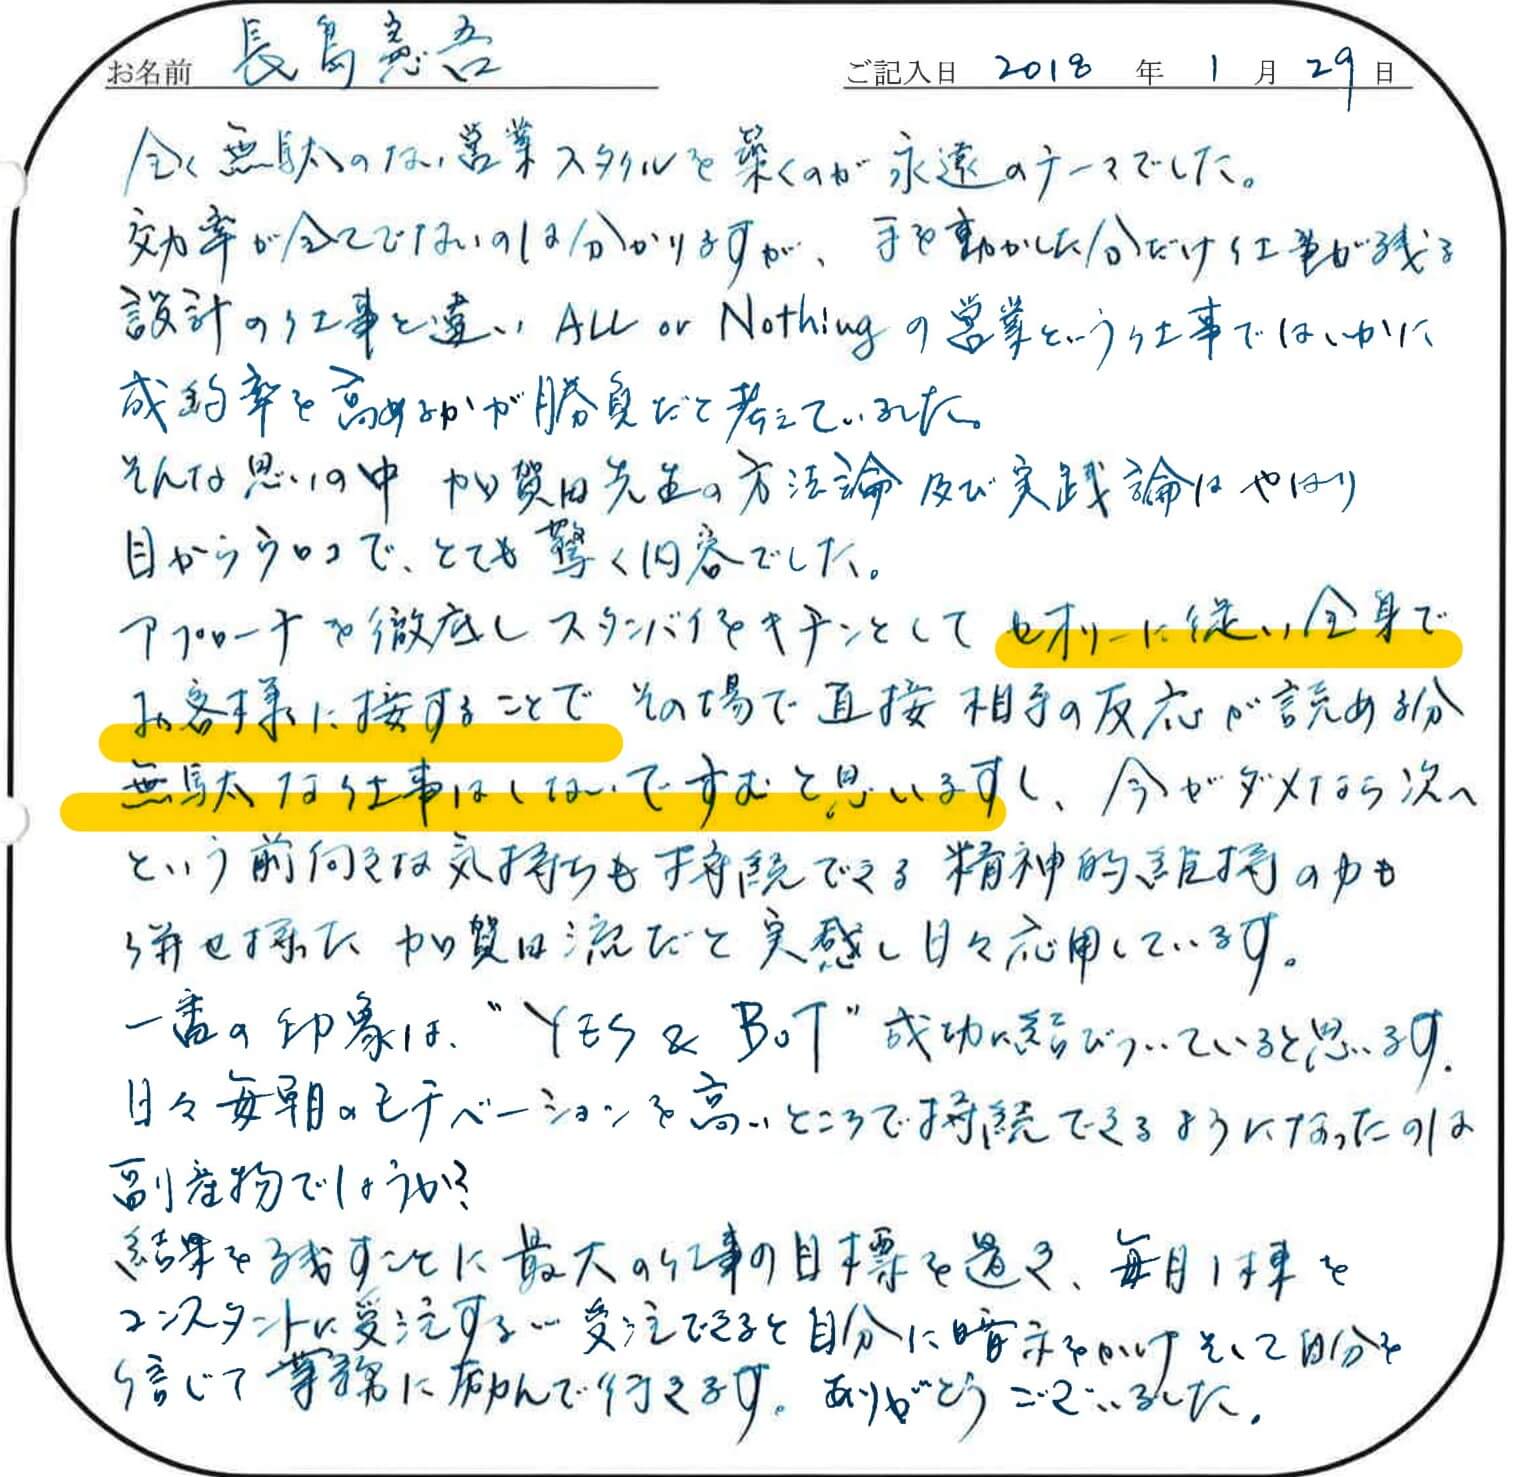 お名前 長島憲吾 ご記入日 2018年1月29日
全く無駄のない営業スタイルを築くのが永遠のテーマでした。
効率が全てでないのは分かりますが、手を動かした分だけ仕事が残る
設計の仕事と違い ALL or Nothingの営業という仕事ではいかに
成約率を高めるかが勝負だと考えていました。
そんな思いの中 加賀田先生の方法論及び実践論はやはり
目からウロコで、とても驚く内容でした。
アプローチを徹底しスタンバイをキチンとしてセオリーに従い全身で
お客様に接することで その場で直接相手の反応が読める分
無駄な仕事はしないですむと思いますし、今がダメなら次へ
という前向きな気持ちも持続できる精神的維持の力も
併せ持った加賀田流だと実感し日々応用しています。
一番の印象は、"YES & BUT"成功に結びついていると思います。
日々毎朝のモチベーションを高いところで持続できるようになったのは
副産物でしょうか?
結果を残すことに最大の仕事の目標を置き、毎月1棟を
コンスタントに受注する… 受注できると自分に暗示をかけ そして自分を
信じて業務に励んで行きます。ありがとうございました。